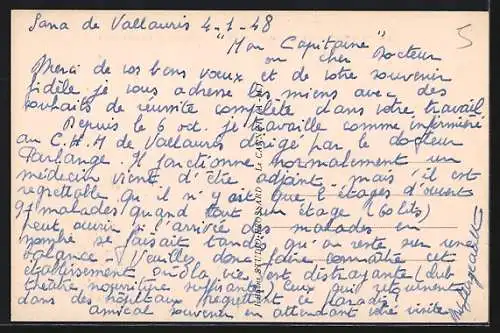 Sana de Vallauris 4-1-48
"Mon Capitaine"
ou cher Docteur
5
Merci de vos bons vœux et de votre souvenir
fidèle je vous adresse les miens avec des
souhaits de réussite complète dans votre travail
Depuis le 6 oct. je travaille comme infirmière
au C.H.M de Vallauris dirigé par le docteur
Parlange. Il fonctionne normalement un
médecin vient d'être adjoint, mais il est
regrettable qu'il n'y ait que 2 étages d'ouvert
97 malades quand tout un étage (60 lits)
peut ouvrir si l'arrivée des malades en
nombre se faisait tandis qu'on reste sur une
balance. Veuillez donc faire connaître cet
établissement où la vie est distrayante (club
théâtre, nourriture suffisante) Ceux qui retournent
dans des hôpitaux regrettent ce paradis.
Amical souvenir en attendant votre visite